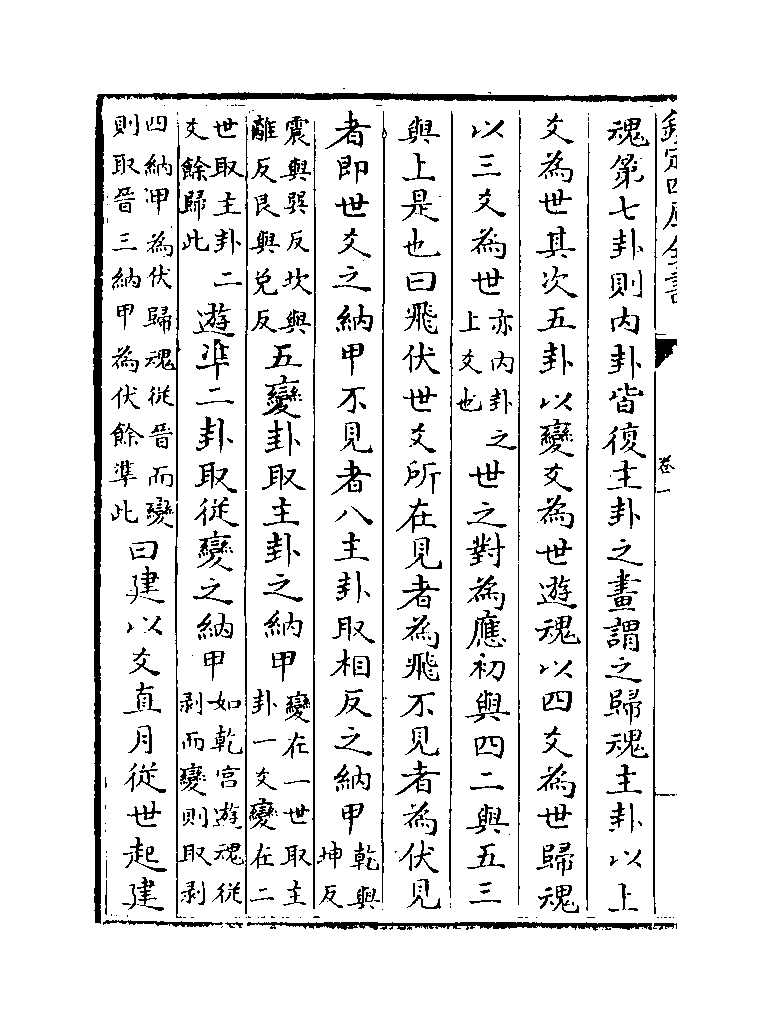 欽定四庫全書
卷一
魂第七卦則内卦皆復主卦之畫謂之歸魂主卦以上
爻為世其次五卦以變爻為世遊魂以四爻為世歸魂
以三爻為世亦内卦之上爻也世之對為應初與四二與五三
與上是也曰飛伏世爻所在見者為飛不見者為伏見
者即世爻之納甲不見者八主卦取相反之納甲乾與坤反
震與巽反坎與離反艮與兌反五變卦取主卦之納甲變在一世取主卦一爻變在二
世取主卦二爻餘歸此遊凖二卦取從變之納甲如乾宮遊魂從剥而變則取剥
四納甲為伏歸魂從晉而變則取晉三納甲為伏餘準此曰建以爻直月從世起建